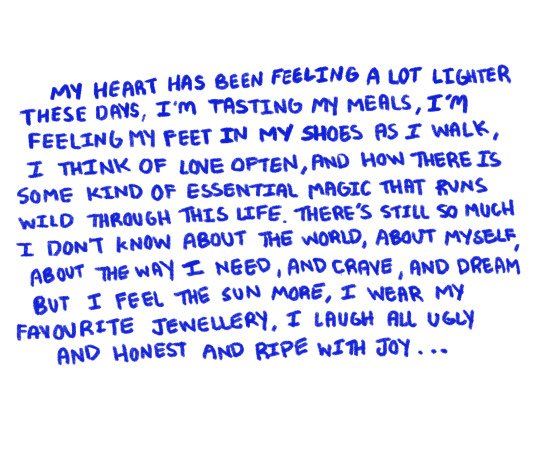 MY HEART HAS BEEN FEELING A LOT LIGHTER
THESE DAYS, I'M TASTING MY MEALS, I'M
FEELING MY FEET IN MY SHOES AS I WALK,
I THINK OF LOVE OFTEN, AND HOW THERE IS
SOME KIND OF ESSENTIAL MAGIC THAT RUNS
WILD THROUGH THIS LIFE. THERE'S STILL SO MUCH
I DON'T KNOW ABOUT THE WORLD, ABOUT MYSELF,
ABOUT THE WAY I NEED, AND CRAVE, AND DREAM
BUT I FEEL THE SUN MORE, I WEAR MY
FAVOURITE JEWELLERY, I LAUGH ALL UGLY
AND HONEST AND RIPE WITH JOY...